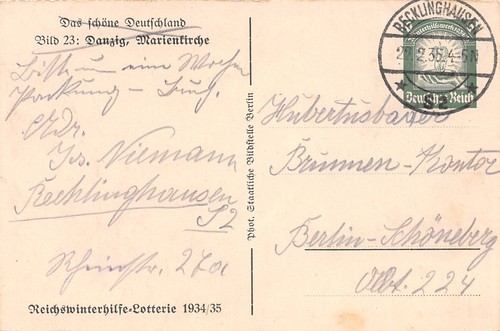 Das schöne Deutschland
Bild 23: Danzig, Marienkirche
Bitte um eine Wochen
Packung –
Adr.
Jos. Niemann
Recklinghausen
S2
Rheinstr. 27a
Reichswinterhilfe-Lotterie 1934/35
Phot. Staatliche Bildstelle Berlin
RECKLINGHAUSEN
2.35.4-5
Deutsches Reich
Hubertusbader
Brunnen-Kontor
Berlin-Schöneberg
Abt. 224